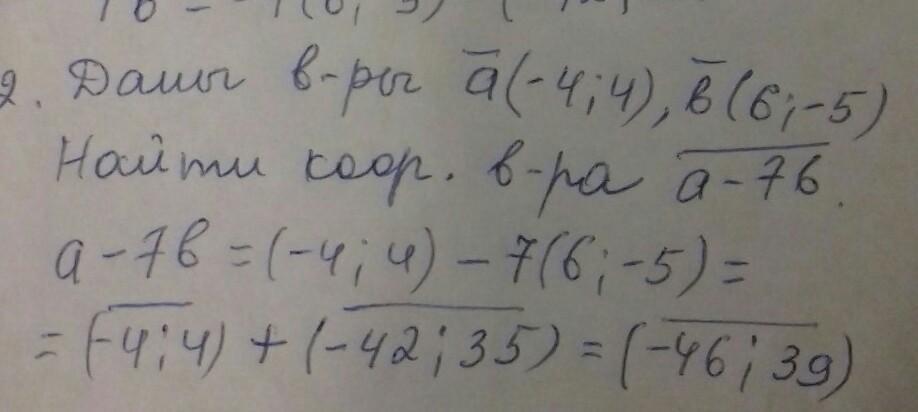 2. Даны в-ры a̅(-4; 4), в̅(6; -5)
Найти коор. в-ра a - 7в.
a - 7в = (-4; 4) - 7(6; -5) =
= (-4; 4) + (-42; 35) = (-46; 39)